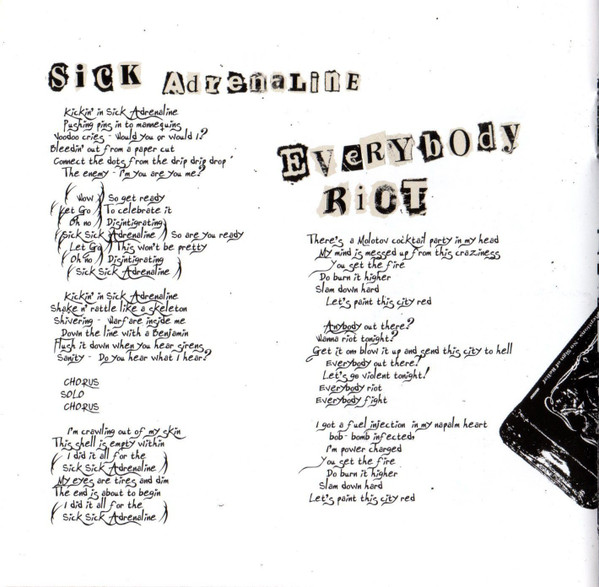 Sick Adrenaline
Kickin' in Sick Adrenaline
Pushing pins in to mannequins
Voodoo cries - Would you or would I?
Bleedin' out from a paper cut
Connect the dots from the drip drip drop
The enemy - I'm you are you me?
(Wow) So get ready
(Let Go) To celebrate it
(Oh no) Disintigrating
(Sick Sick Adrenaline) So are you ready
(Let Go) This won't be pretty
(Oh no) Disintigrating
(Sick Sick Adrenaline)
Kickin' in Sick Adrenaline
Shake n' rattle like a skeleton
Shivering - Warfare inside me
Down the line with a Benjamin
Flush it down when you hear sirens
Sanity - Do you hear what I hear?
CHORUS
SOLO
CHORUS
I'm crawling out of my skin
This shell is empty within
(I did it all for the
Sick Sick Adrenaline)
My eyes are tires and dim
The end is about to begin
(I did it all for the
Sick Sick Adrenaline)
Everybody
Riot
There's a Molotov cocktail party in my head
My mind is messed up from this craziness
You set the fire
Do burn it higher
Slam down hard
Let's paint this city red
Anybody out there?
Wanna riot tonight?
Get it om blow it up and send this city to hell
Everybody out there?
Let's go violent tonight!
Everybody riot
Everybody fight
I got a fuel injection in my napalm heart
bob-bomb infected
I'm power charged
You set the fire
Do burn it higher
Slam down hard
Let's paint this city red